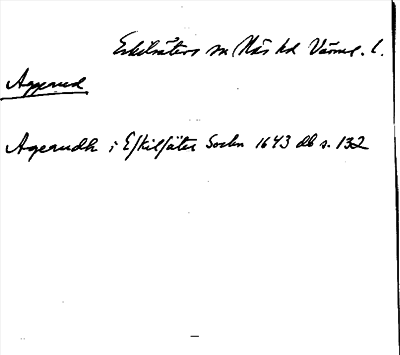 Eskilsäters sn Näs hd Värml. l.
Aggerud
Agerudh i Eskilsäter Sochn 1643 db s. 132